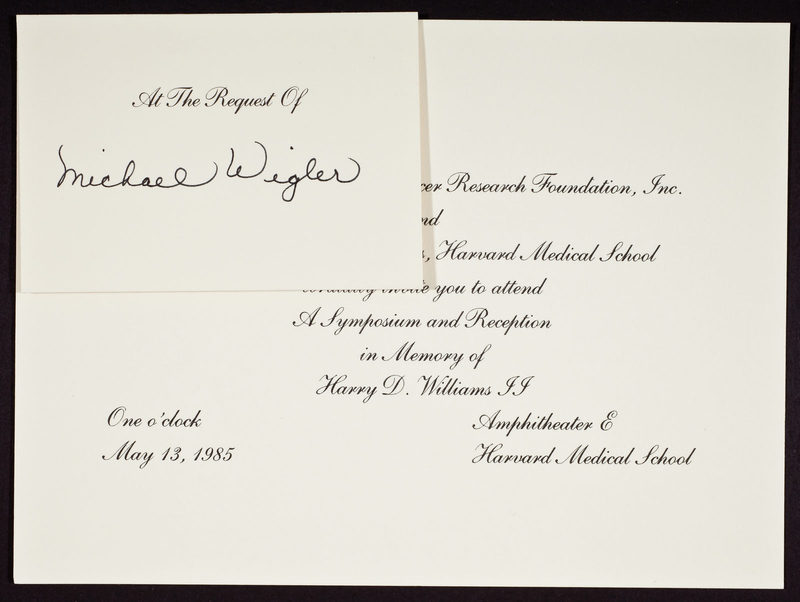 At The Request Of
Michael Wigler
Research Foundation, Inc.
Harvard Medical School
you to attend
A Symposium and Reception
in Memory of
Harry D. Williams II
One o'clock
May 13, 1985
Amphitheater E
Harvard Medical School